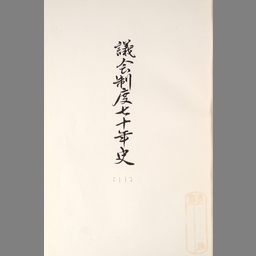 議会制度七十年史